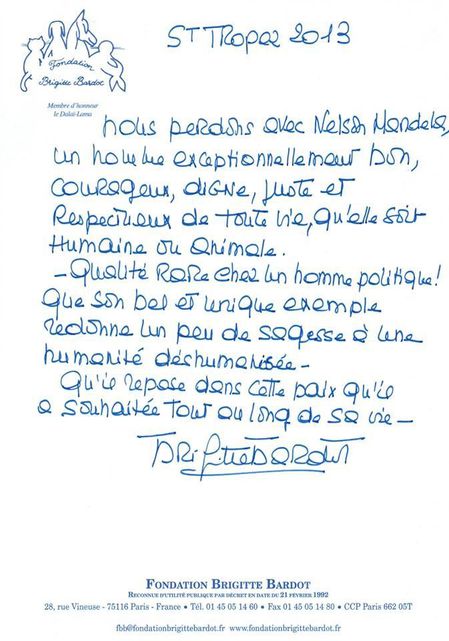 Fondation
Brigitte Bardot
Membre d'honneur
le Dalaï-Lama
St Tropez 2013
Nous perdons avec Nelson Mandela,
un homme exceptionnellement bon,
courageux, digne, juste et
Respectueux de toute vie, qu'elle soit
Humaine ou animale.
- Qualité RARe chez un homme politique !
Que son bel et unique exemple
redonne un peu de sagesse à une
humanité déshumanisée -
Qu'il repose dans cette paix qu'il
a souhaitée tout au long de sa vie -
BRigitte BARdot
FONDATION BRIGITTE BARDOT
RECONNUE D'UTILITÉ PUBLIQUE PAR DÉCRET EN DATE DU 21 FÉVRIER 1992
28, rue Vineuse - 75116 Paris - France • Tél. 01 45 05 14 60 • Fax 01 45 05 14 80 • CCP Paris 662 05T
fbb@fondationbrigittebardot.fr www.fondationbrigittebardot.fr